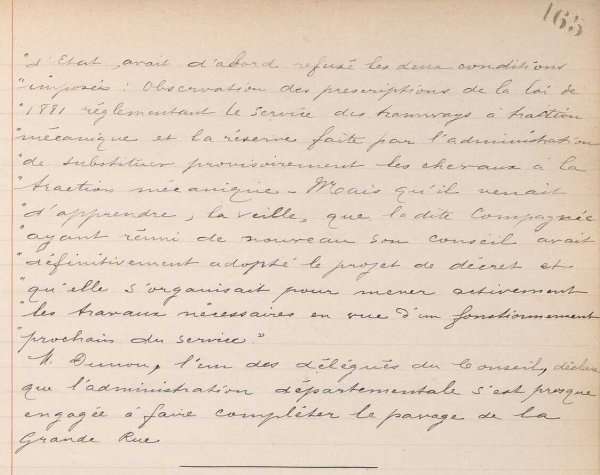 165
"d'Etat, avait d'abord refusé les deux conditions
"imposées : Observation des prescriptions de la loi de
"1881 réglementant le service des tramways à traction
"mécanique et la réserve faite par l'administration
"de substituer provisoirement les chevaux à la
"traction mécanique - Mais qu'il venait
"d'apprendre, la veille, que ladite Compagnie
"ayant réuni de nouveau son conseil avait
"définitivement adopté le projet de décret et
"qu'elle s'organisait pour mener activement
"les travaux nécessaires en vue d'un fonctionnement
"prochain du service."
M. l'un des délégués du Conseil, déclare
que l'administration départementale s'est presque
engagée à faire compléter le pavage de la
Grande Rue